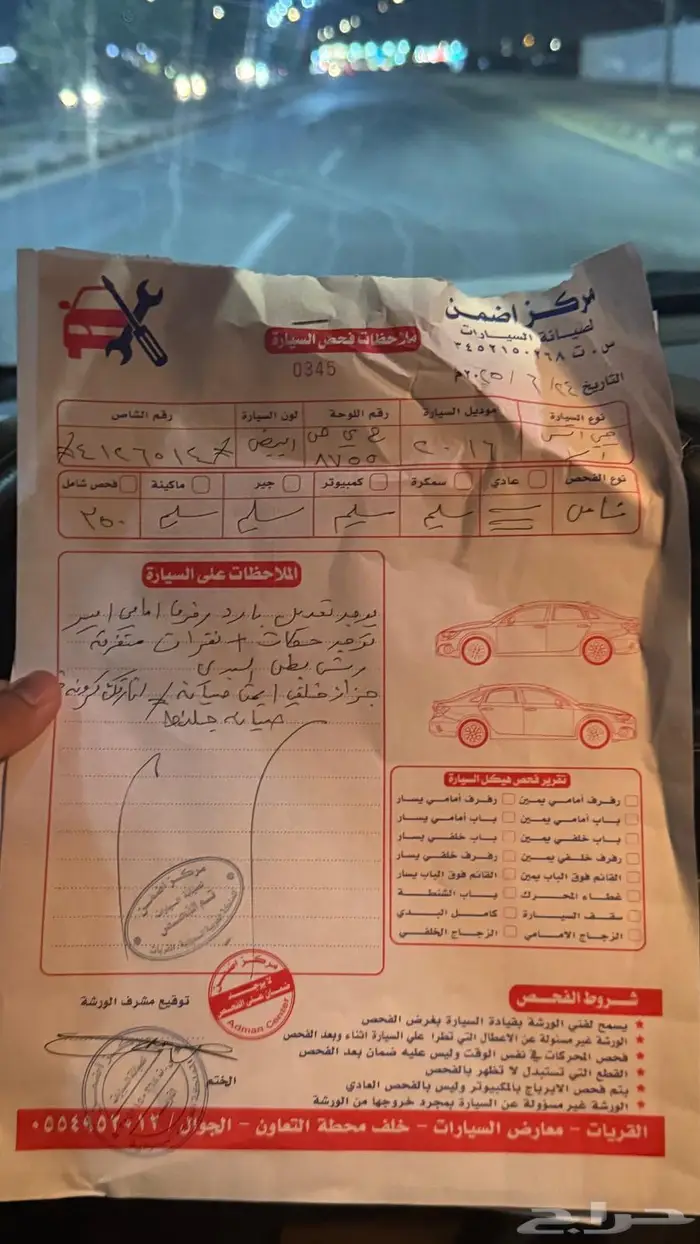 مركز اضمن
لصيانة السيارات
س . ت ٣٤٥٢١٥٠٢٦٨
ملاحظات فحص السيارة
0345
التاريخ ٢٤ / ٦ / ٢٠٢٥م
نوع السيارة موديل السيارة رقم اللوحة لون السيارة رقم الشاص
جي اكس ٢٠١٦ ح ي ص ٨٧٥٥ ابيض
نوع الفحص عادي سمكرة كمبيوتر جير ماكينة فحص شامل
شامل سليم سليم سليم سليم ٢٥٠
الملاحظات على السيارة
يوجد تعديل بارد رفرف امامي ايسر
توجد حكات + نقرات متفرقة
رش بطن البدي
صيانة جلنط
تقرير فحص هيكل السيارة
رفرف أمامي يمين رفرف أمامي يسار
باب أمامي يمين باب أمامي يسار
باب خلفي يمين باب خلفي يسار
رفرف خلفي يمين رفرف خلفي يسار
القائم فوق الباب يمين القائم فوق الباب يسار
غطاء المحرك باب الشنطة
سقف السيارة كامل البدي
الزجاج الامامي الزجاج الخلفي
مركز اضمن
لصيانة السيارات
تم الفحص
مركز اضمن
لا يوجد
ضمان على الفحص
Adman Center
توقيع مشرف الورشة
الختم
شروط الفحص
يسمح لفني الورشة بقيادة السيارة بغرض الفحص
الورشة غير مسئولة عن الاعطال التي تطرا علي السيارة اثناء وبعد الفحص
فحص المحركات في نفس الوقت وليس عليه ضمان بعد الفحص
القطع التي تستبدل لا تظهر بالفحص
يتم فحص الايرباج بالكمبيوتر وليس بالفحص العادي
الورشة غير مسؤولة عن السيارة بمجرد خروجها من الورشة
القريات - معارض السيارات - خلف محطة التعاون - الجوال / ٠٥٥٤٩٥٢٠١٢
حراج